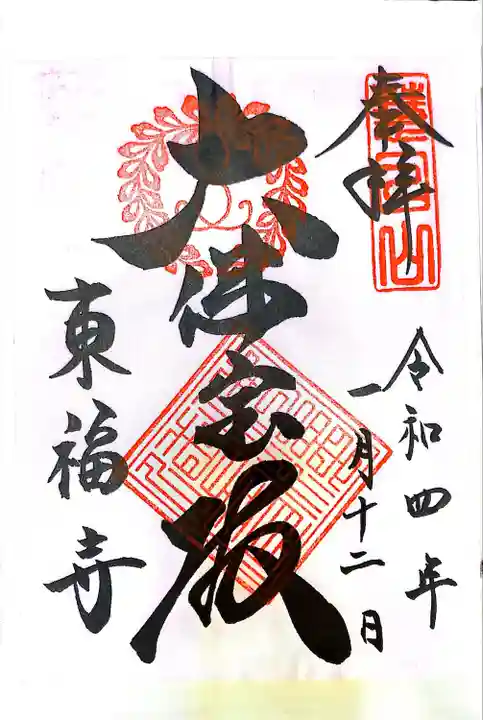 奉拝
令和四年
一月十二日
大佛宝殿
東福寺